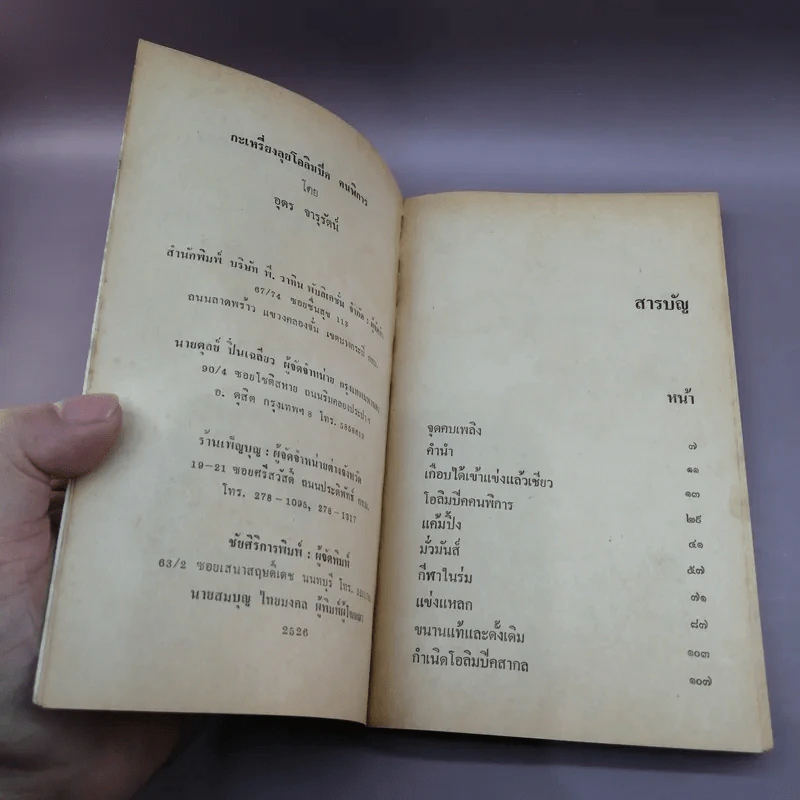 กะเหรี่ยงลุยโอลิมปิค คนพิการ
โดย
อุดร จารุรัตน์
สำนักพิมพ์ บริษัท พี. วาทิน พับลิเคชั่น จำกัด :
67/74 ซอยชื่นสุข 113
ถนนลาดพร้าว แขวงคลองจั่น เขตบางกะปิ
นายดุลย์ ปิ่นเฉลียว ผู้จัดจำหน่าย
90/4 ซอยโชติสหาย ถนนริมคลองประปา
อ. ดุสิต กรุงเทพฯ 8 โทร.
ร้านเพ็ญบุญ : ผู้จัดจำหน่ายต่างจังหวัด
19-21 ซอยศรีสวัสดิ์ ถนนประดิพัทธ์ กทม.
โทร. 278-1095, 278-1317
ชัยศิริการพิมพ์ : ผู้จัดพิมพ์
63/2 ซอยเสนาสฤษดิ์เดช นนทบุรี โทร.
นายสมบุญ ไทยมงคล ผู้พิมพ์ผู้โฆษณา
2526
สารบัญ
หน้า
จุดคบเพลิง ๗
คำนำ ๑๑
เกือบได้เข้าแข่งแล้วเชียว ๑๓
โอลิมปิคคนพิการ ๒๙
แค้มปิ้ง ๔๑
มั่วมันส์ ๕๗
กีฬาในร่ม ๗๑
แข่งแหลก ๘๗
ขนานแท้และดั้งเดิม ๑๐๓
กำเนิดโอลิมปิคสากล ๑๐๗